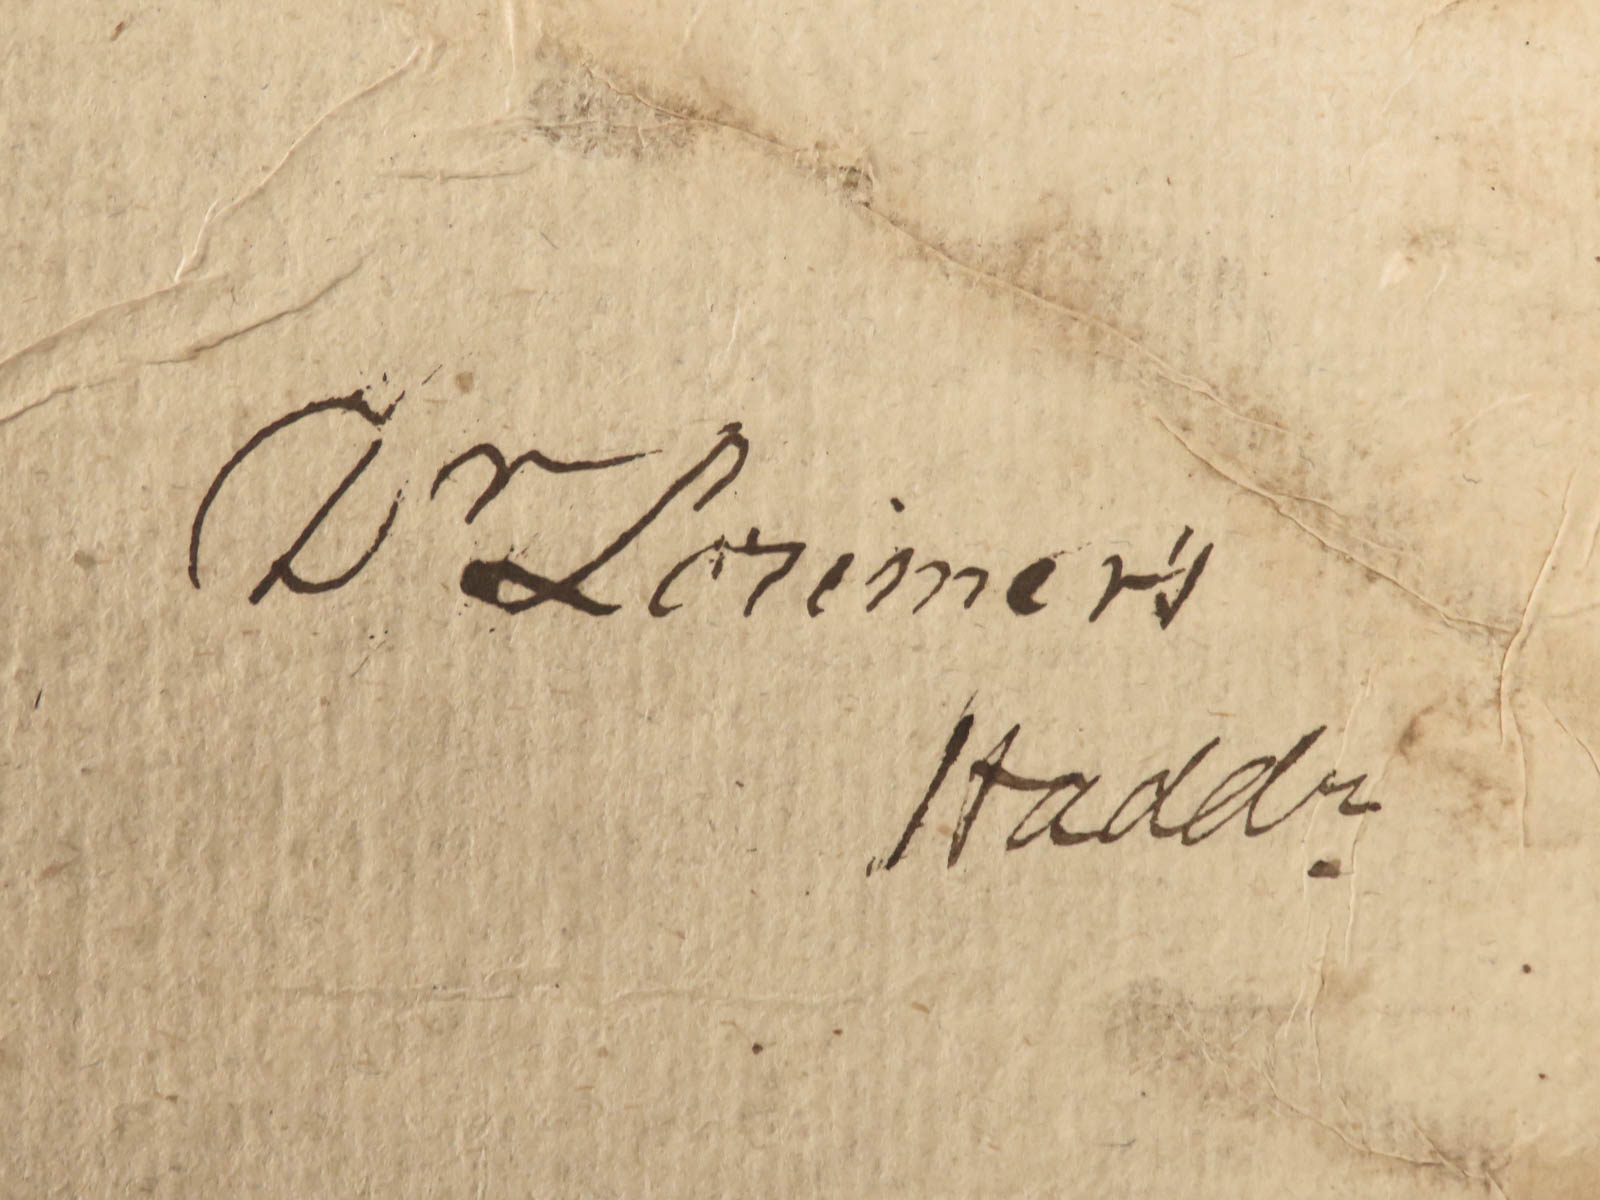 Dr Lorimer's
Haddn.